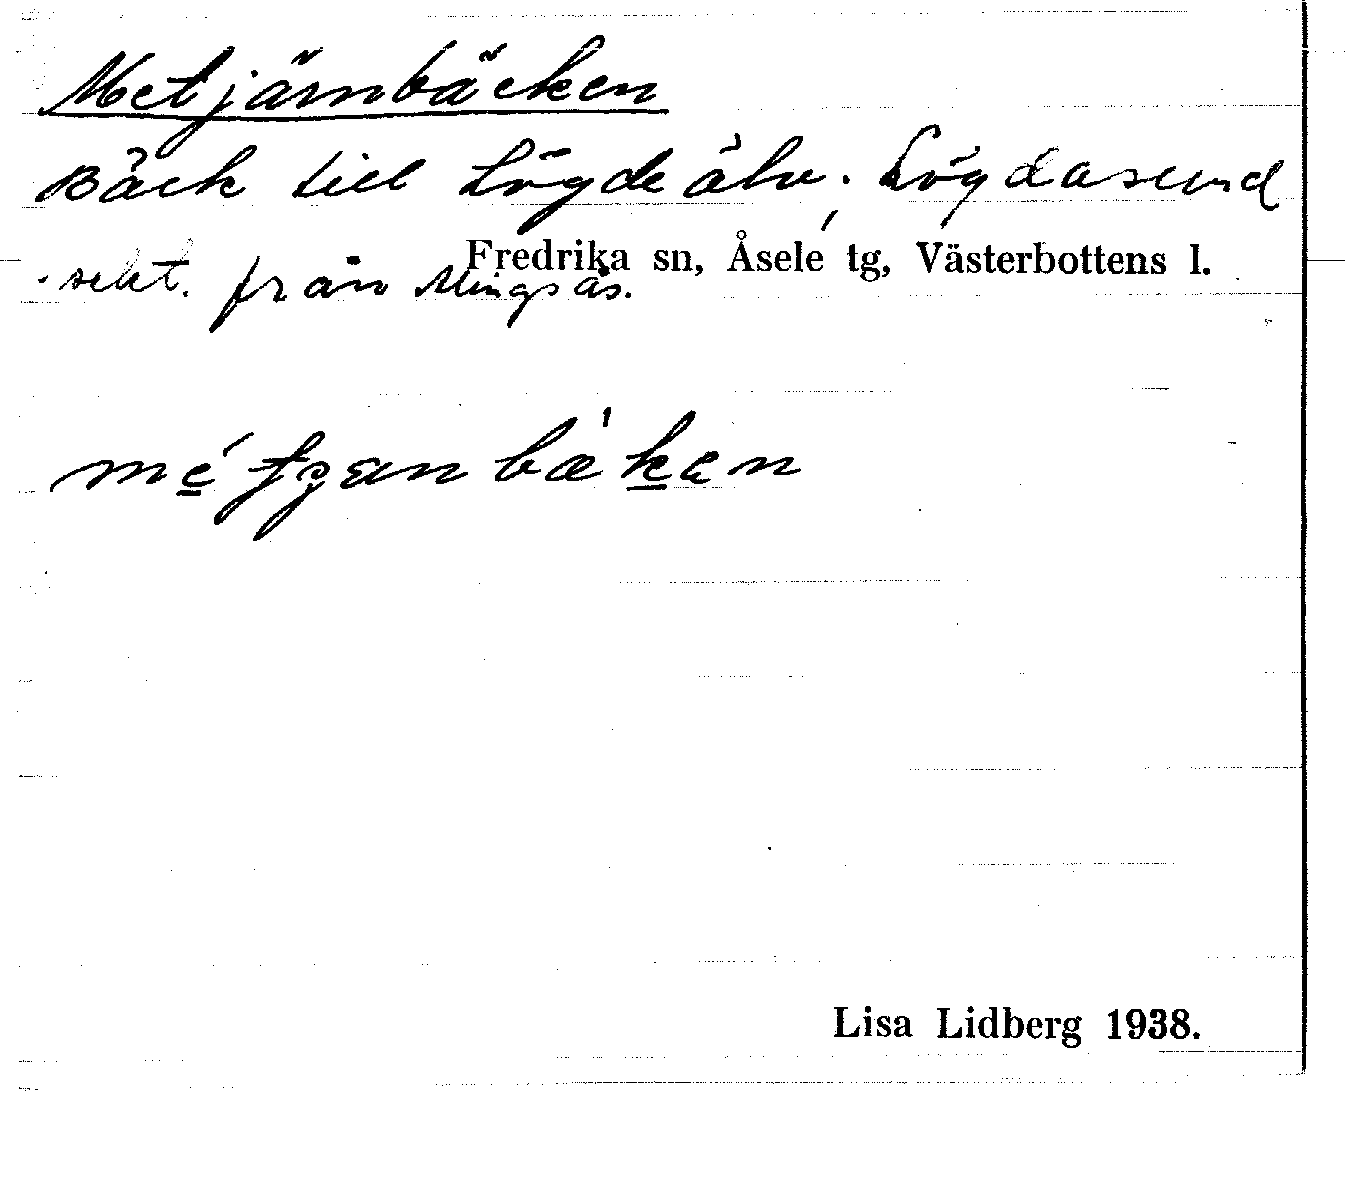 Metjärnbäcken
Bäck till Lögde älv. Lögdasund
Fredrika sn, Åsele tg, Västerbottens l.
sekt. från Mingsås.
Lisa Lidberg 1938.